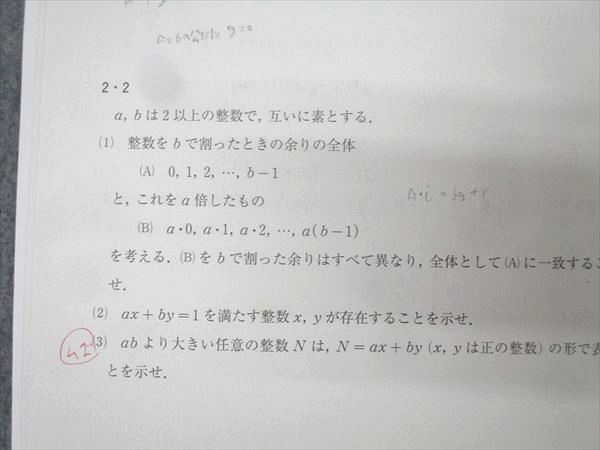 2・2
a, b は2以上の整数で, 互いに素とする.
(1) 整数を b で割ったときの余りの全体
(A) 0, 1, 2, …, b−1
と, これを a 倍したもの
a・i = bq+r
(B) a・0, a・1, a・2, …, a(b−1)
を考える. (B)を b で割った余りはすべて異なり, 全体として(A)に一致するこ
せ.
(2) ax+by=1 を満たす整数 x, y が存在することを示せ.
3) ab より大きい任意の整数 N は, N=ax+by (x, y は正の整数) の形で表
とを示せ.